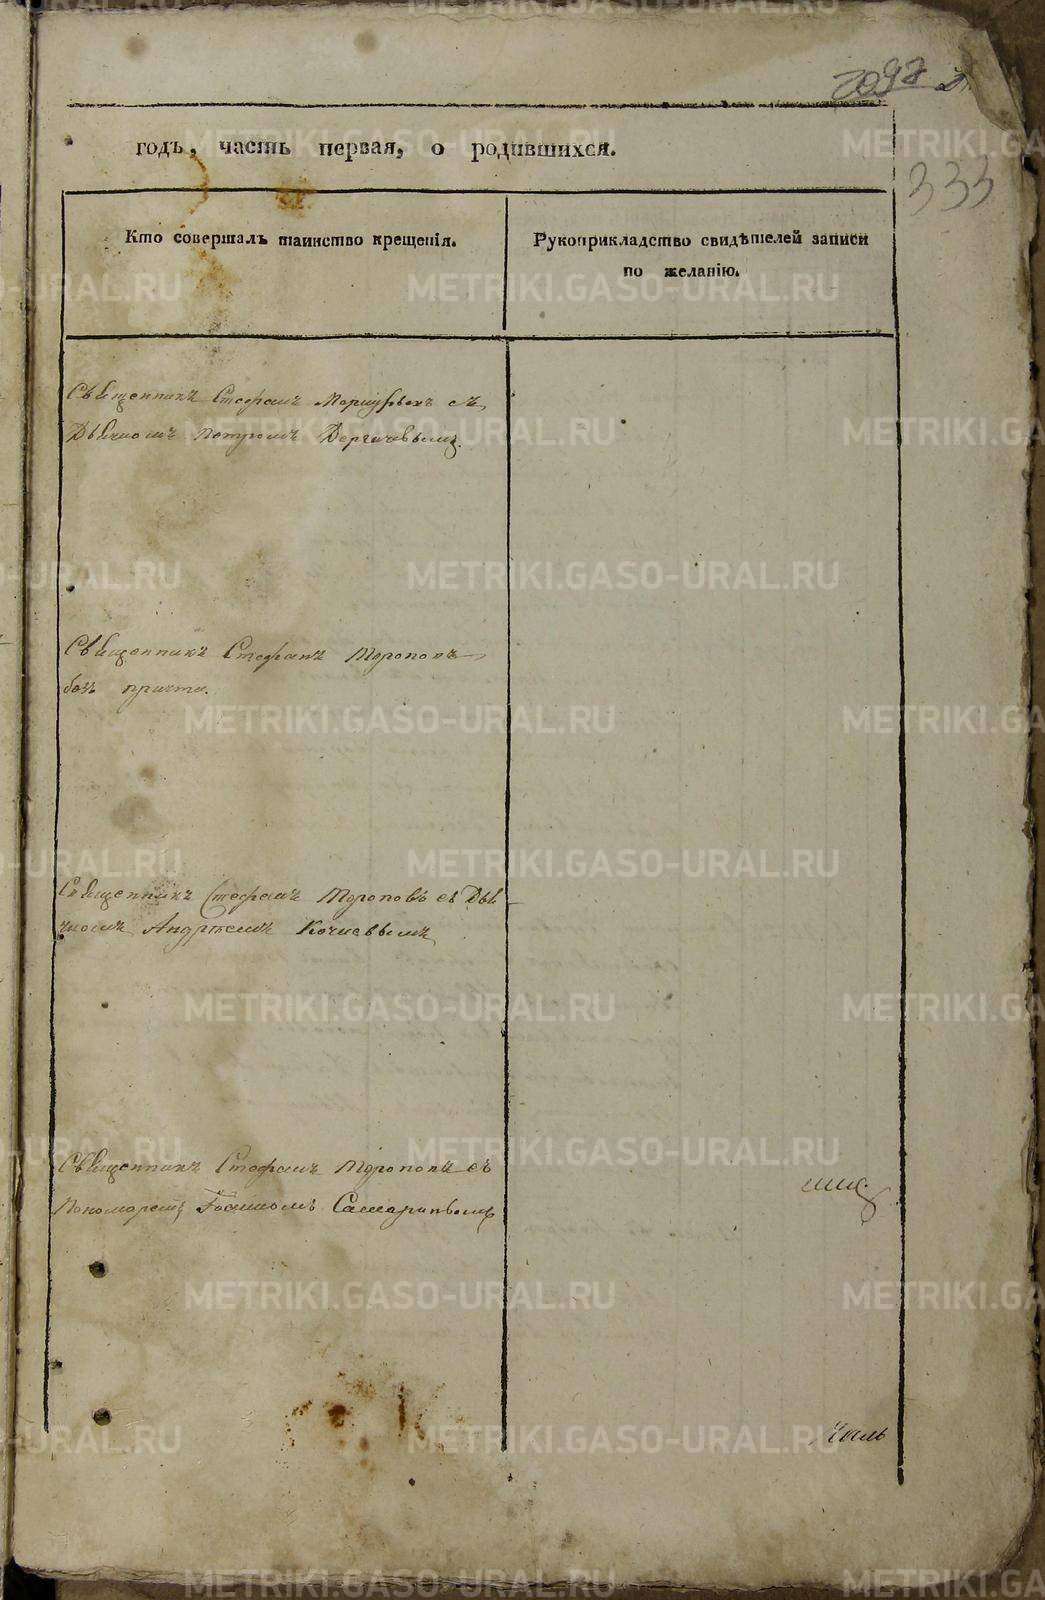 333
годъ, часть первая, о родившихся.
Кто совершалъ таинство крещенія.
Рукоприкладство свидѣтелей записи
по желанію.
Священникъ Стефанъ съ
Дьячкомъ Петромъ
Священникъ Стефанъ Тороповъ
безъ причта.
Священникъ Стефанъ Тороповъ съ Дья
чкомъ Андреемъ Кочневымъ
Священникъ Стефанъ Тороповъ съ
Пономаремъ Іоанномъ Самаринымъ
METRIKI.GASO-URAL.RU